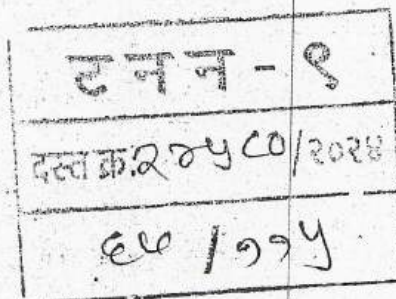 टनन - ९
दस्त क्र.२४५८०/२०२४
६७ /११५